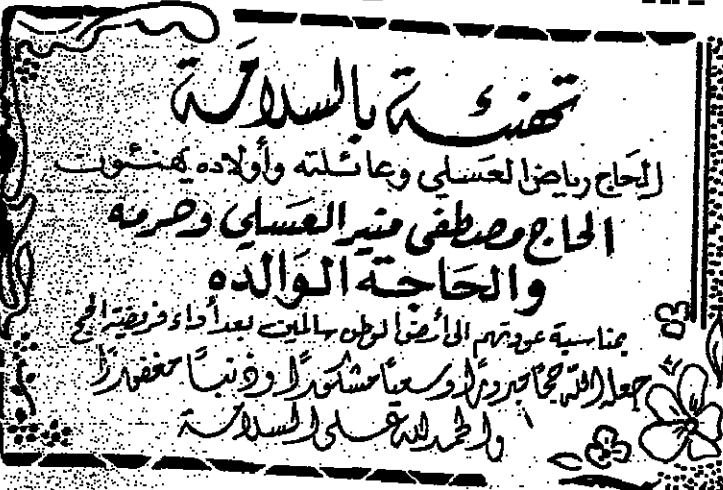 تهنئة بالسلامة
الحاج رياض العسلي وعائلته وأولاده يهنئون
الحاج مصطفى منير العسلي وحرمه
والحاجة الوالده
بمناسبة عودتهم الى أرض الوطن سالمين بعد أداء فريضة الحج
جعله الله حجاً مبروراً وسعياً مشكوراً وذنباً مغفوراً
والحمد لله على السلامة